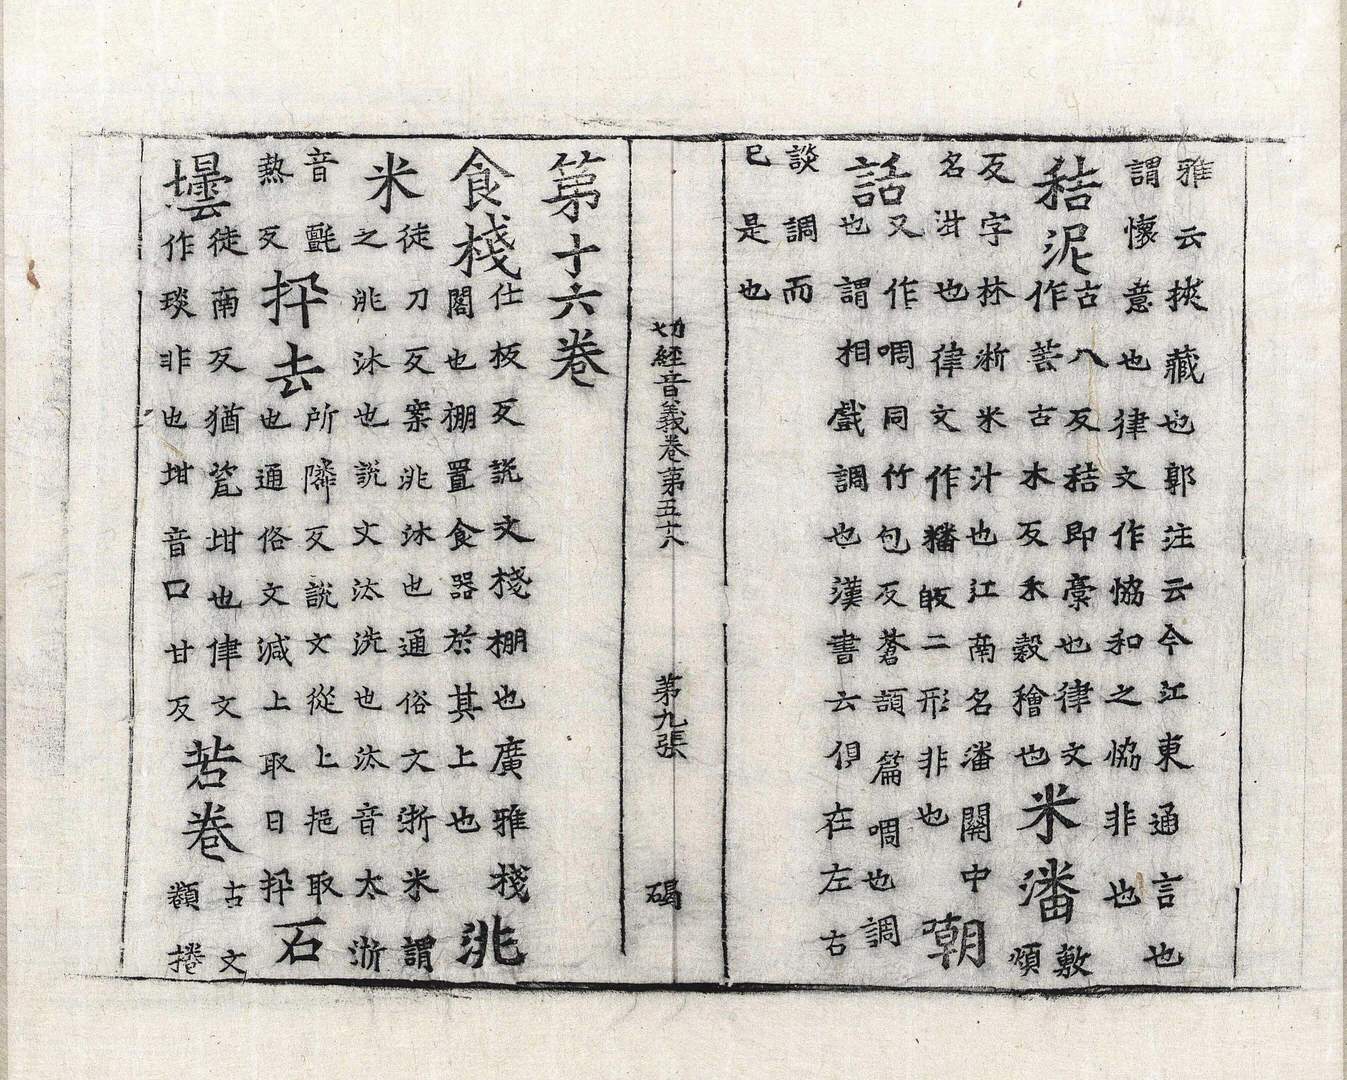 雅云挾藏也郭注云今江東通言也
謂懷意也律文作恊和之恊非也
秸泥
古八反秸即稾也律文
作䓤古木反禾穀穧也
米潘
敷
煩
反字林淅米汁也江南名潘關中
名泔也律文作二形非也
嘲
話
又作啁同竹包反蒼頡篇啁也調
也謂相戲調也漢書云俱在左右
談調而
已是也
切經音義卷第五十八
第九張
碣
第十六卷
食棧
仕板反說文棧棚也廣雅棧
閣也棚置食器於其上也
洮
米
徒刀反案洮沐也通俗文淅米謂
之洮沐也說文汰洗也汰音太淅
音氈
熱反
扟去
所隣反說文從上挹取
也通俗文減上取曰扟
石
壜
徒南反猶瓷坩也律文
作琰非也坩音口甘反
若卷
古文
纇捲